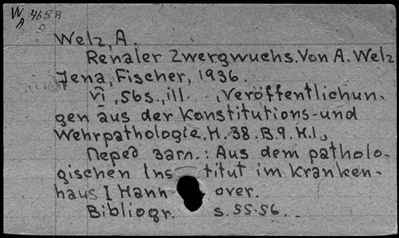 W 465 R
A
Welz, A.
Renaler Zwergwuchs. Von A. Welz
Jena, Fischer, 1936.
VI, 56s., ill. „Veröffentlichun-
gen aus der Konstitutions-und
Wehrpathologie. H. 38. B. 9. H. 1„
Перед загл.: Aus dem patholo-
gischen Ins titut im Kranken-
haus I Hann over.
Bibliogr. s. 55-56.